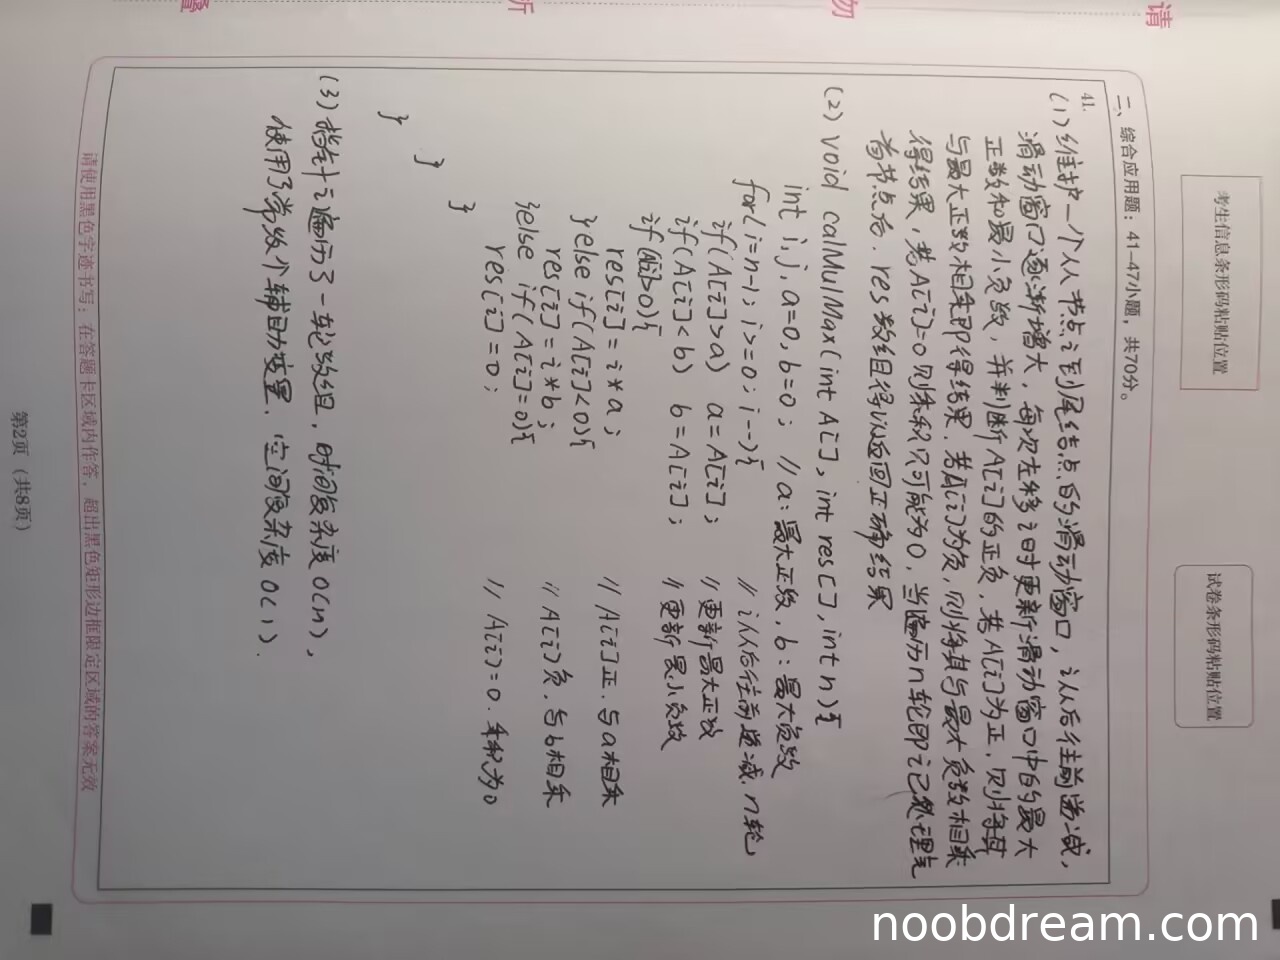 请
勿
折
叠
考生信息条形码粘贴位置
试卷条形码粘贴位置
二、综合应用题：41-47小题，共70分。
41.
(1) 维护一个从节点i到尾结点的滑动窗口，i从后往前递减，
滑动窗口逐渐增大，每次左移i时更新滑动窗口中的最大
正数和最小负数，并判断A[i]的正负，若A[i]为正，则将其
与最大正数相乘即得结果，若A[i]为负，则将其与最大负数相乘
得结果，若A[i]=0则乘积只可能为0，当遍历n轮即i已处理完
首节点后，res数组得以返回正确结果
(2) void calMulMax(int A[], int res[], int n){
int i,j,a=0,b=0; //a:最大正数,b:最大负数
for(i=n-1; i>=0; i--){ //i从后往前递减,n轮
if(A[i]>a) a=A[i]; //更新最大正数
if(A[i]<b) b=A[i]; //更新最小负数
if(A[i]>0){
res[i]=i*a; //A[i]正.与a相乘
}else if(A[i]<0){
res[i]=i*b; //A[i]负.与b相乘
}else if(A[i]=0){
res[i]=0; //A[i]=0.乘积为0
}
}
}
(3) 指针i遍历了一轮数组，时间复杂度O(n)，
使用了常数个辅助变量，空间复杂度O(1).
请使用黑色字迹书写；在答题卡区域内作答，超出黑色矩形边框限定区域的答案无效
第2页（共8页）
noobdream.com